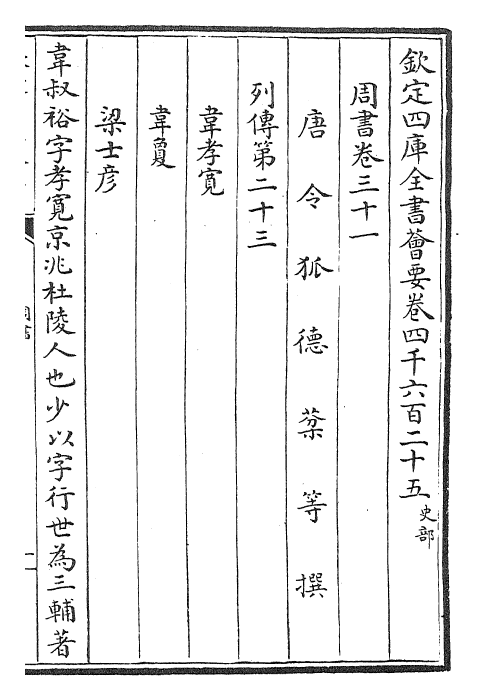 欽定四庫全書薈要卷四千六百二十五史部
周書卷三十一
唐令狐德棻等撰
列傳第二十三
韋孝寬
韋敻
梁士彦
韋叔裕字孝寬京兆杜陵人也少以字行世為三輔著